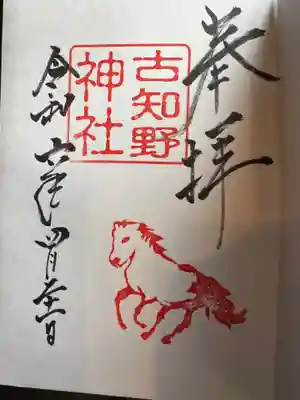 奉拝
古知野
神社
令和六年四月日